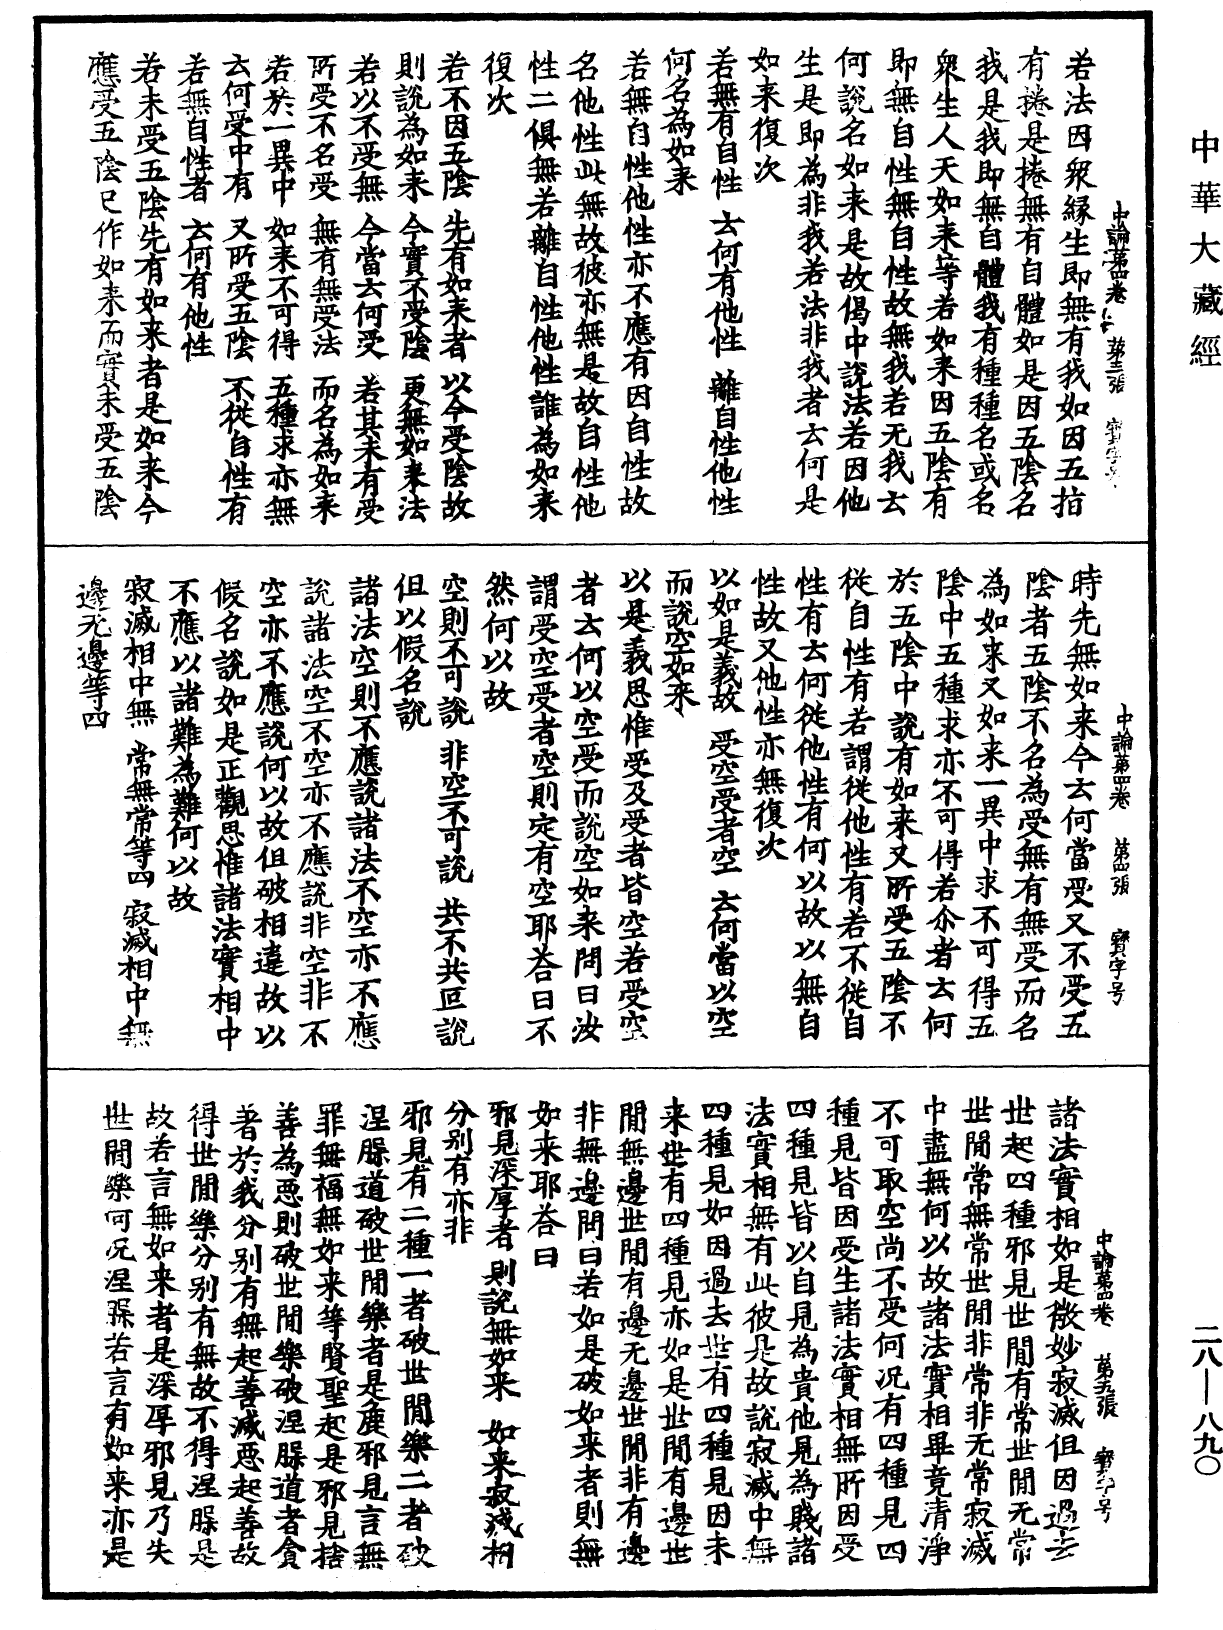 中華大藏經
中論第四卷 第三張 寶字号
若法因衆緣生即無有我如因五指
有捲是捲無有自體如是因五陰名
我是我即無自體我有種種名或名
衆生人天如來等若如來因五陰有
即無自性無自性故無我若无我云
何說名如來是故偈中說法若因他
生是即為非我若法非我者云何是
如來復次
若無有自性 云何有他性 離自性他性
何名為如來
若無自性他性亦不應有因自性故
名他性此無故彼亦無是故自性他
性二俱無若離自性他性誰為如來
復次
若不因五陰 先有如來者 以今受陰故
則說為如來 今實不受陰 更無如來法
若以不受無 今當云何受 若其未有受
所受不名受 無有無受法 而名為如來
若於一異中 如來不可得 五種求亦無
云何受中有 又所受五陰 不從自性有
若無自性者 云何有他性
若未受五陰先有如來者是如來今
應受五陰已作如來而實未受五陰
中論第四卷 第四張 寶字号
時先無如來今云何當受又不受五
陰者五陰不名為受無有無受而名
為如來又如來一異中求不可得五
陰中五種求亦不可得若尒者云何
於五陰中說有如來又所受五陰不
從自性有若謂從他性有若不從自
性有云何從他性有何以故以無自
性故又他性亦無復次
以如是義故 受空受者空 云何當以空
而說空如來
以是義思惟受及受者皆空若受空
者云何以空受而說空如來問曰汝
謂受空受者空則定有空耶荅曰不
然何以故
空則不可說 非空不可說 共不共叵說
但以假名說
諸法空則不應說諸法不空亦不應
說諸法空不空亦不應說非空非不
空亦不應說何以故但破相違故以
假名說如是正觀思惟諸法實相中
不應以諸難為難何以故
寂滅相中無 常無常等四 寂滅相中無
邊无邊等四
中論第四卷 第五張 寶字号
諸法實相如是微妙寂滅但因過去
世起四種邪見世間有常世間无常
世間常無常世間非常非无常寂滅
中盡無何以故諸法實相畢竟清淨
不可取空尚不受何况有四種見四
種見皆因受生諸法實相無所因受
四種見皆以自見為貴他見為賤諸
法實相無有此彼是故說寂滅中無
四種見如因過去世有四種見因未
來世有四種見亦如是世間有邊世
間無邊世間有邊无邊世間非有邊
非無邊問曰若如是破如來者則無
如來耶荅曰
邪見深厚者 則說無如來 如來寂滅相
分別有亦非
邪見有二種一者破世間樂二者破
涅槃道破世間樂者是麁邪見言無
罪無福無如來等賢聖起是邪見捨
善為惡則破世間樂破涅槃道者貪
著於我分別有無起善滅惡起善故
得世間樂分別有無故不得涅槃是
故若言無如來者是深厚邪見乃失
世間樂何况涅槃若言有如來亦是
二八—八九〇